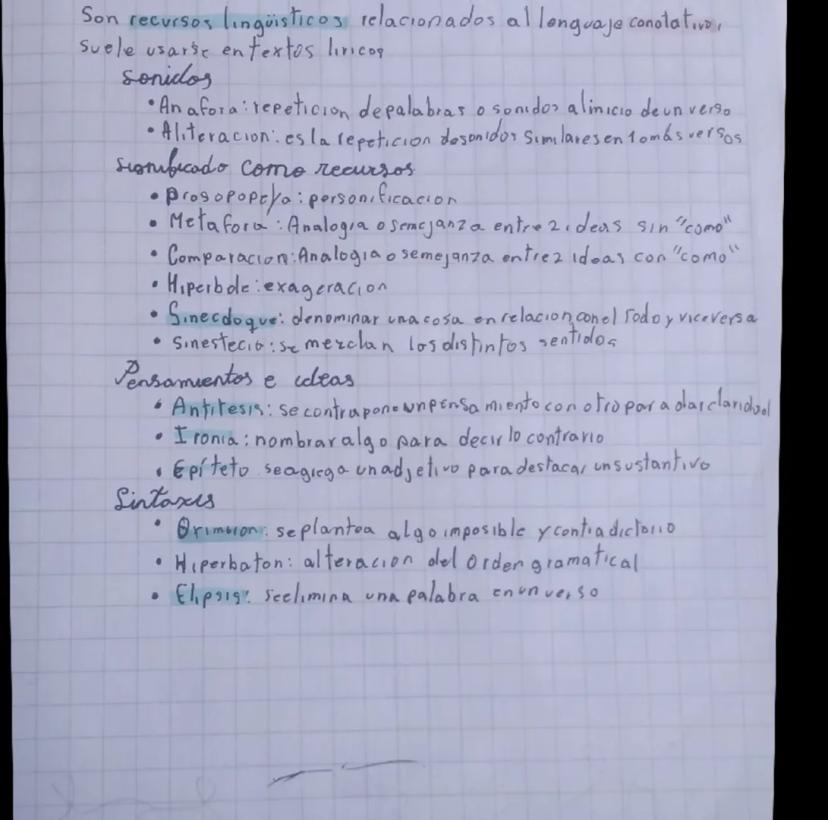 Son recursos lingüisticos relacionados al lenguaje conotativo,
suele usarse en textos liricos
Sonidos
• Anafora: repeticion de palabras o sonidos al inicio de un verso
• Aliteracion: es la repeticion de sonidos similares en 1 o más versos
Significado como recursos
• Prosopopeya: personificacion
• Metafora: Analogia o semejanza entre 2 ideas sin "como"
• Comparacion: Analogia o semejanza entre 2 ideas con "como"
• Hiperbole: exageracion
• Sinecdoque: denominar una cosa en relacion con el Todo y viceversa
• Sinestecia: se mezclan los distintos sentidos
Pensamientos e ideas
• Antitesis: se contrapone un pensamiento con otro para dar claridad
• Ironia: nombrar algo para decir lo contrario
• Epíteto se agrega un adjetivo para destacar un sustantivo
Sintaxis
• se plantea algo imposible y contradictorio
• Hiperbaton: alteracion del orden gramatical
• Elipsis: se elimina una palabra en un verso